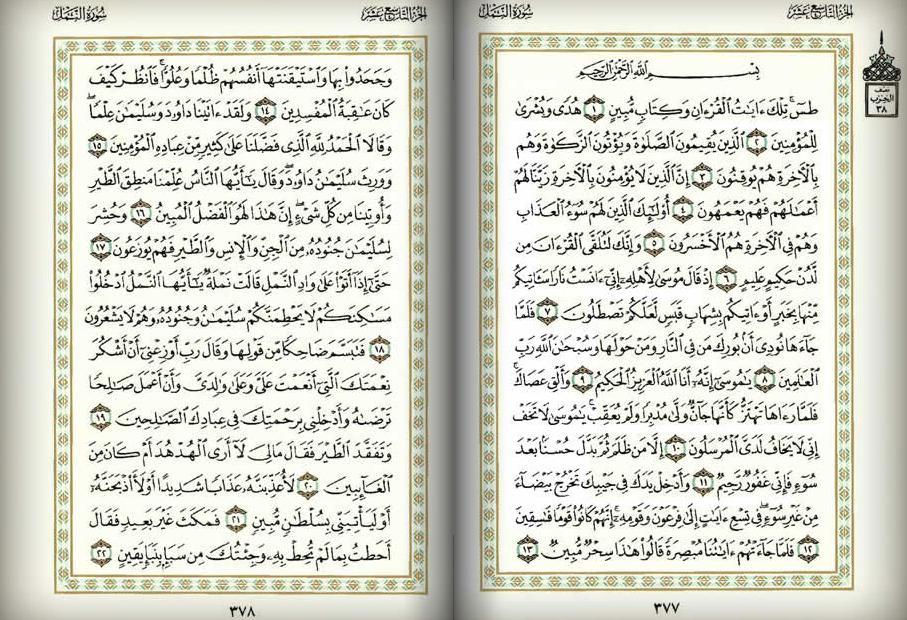 الجزء التاسع عشر
سورة النمل
بسم الله الرحمن الرحيم
طسٓ ۚ تِلْكَ ءَايَٰتُ ٱلْقُرْءَانِ وَكِتَابٍ مُّبِينٍ ١ هُدًى وَبُشْرَىٰ
لِلْمُؤْمِنِينَ ٢ ٱلَّذِينَ يُقِيمُونَ ٱلصَّلَوٰةَ وَيُؤْتُونَ ٱلزَّكَوٰةَ وَهُم
بِٱلْءَاخِرَةِ هُمْ يُوقِنُونَ ٣ إِنَّ ٱلَّذِينَ لَا يُؤْمِنُونَ بِٱلْءَاخِرَةِ زَيَّنَّا لَهُمْ
أَعْمَٰلَهُمْ فَهُمْ يَعْمَهُونَ ٤ أُو۟لَٰٓئِكَ ٱلَّذِينَ لَهُمْ سُوٓءُ ٱلْعَذَابِ
وَهُمْ فِى ٱلْءَاخِرَةِ هُمُ ٱلْأَخْسَرُونَ ٥ وَإِنَّكَ لَتُلَقَّى ٱلْقُرْءَانَ مِن
لَّدُنْ حَكِيمٍ عَلِيمٍ ٦ إِذْ قَالَ مُوسَىٰ لِأَهْلِهِۦٓ إِنِّىٓ ءَانَسْتُ نَارًا سَـَٔاتِيكُم
مِّنْهَا بِخَبَرٍ أَوْ ءَاتِيكُم بِشِهَابٍ قَبَسٍ لَّعَلَّكُمْ تَصْطَلُونَ ٧ فَلَمَّا
جَآءَهَا نُودِىَ أَنۢ بُورِكَ مَن فِى ٱلنَّارِ وَمَنْ حَوْلَهَا وَسُبْحَٰنَ ٱللَّهِ رَبِّ
ٱلْعَٰلَمِينَ ٨ يَٰمُوسَىٰٓ إِنَّهُۥٓ أَنَا ٱللَّهُ ٱلْعَزِيزُ ٱلْحَكِيمُ ٩ وَأَلْقِ عَصَاكَ ۚ
فَلَمَّا رَءَاهَا تَهْتَزُّ كَأَنَّهَا جَآنٌّ وَلَّىٰ مُدْبِرًا وَلَمْ يُعَقِّبْ ۚ يَٰمُوسَىٰ لَا تَخَفْ
إِنِّى لَا يَخَافُ لَدَىَّ ٱلْمُرْسَلُونَ ١٠ إِلَّا مَن ظَلَمَ ثُمَّ بَدَّلَ حُسْنًۢا بَعْدَ
سُوٓءٍ فَإِنِّى غَفُورٌ رَّحِيمٌ ١١ وَأَدْخِلْ يَدَكَ فِى جَيْبِكَ تَخْرُجْ بَيْضَآءَ
مِنْ غَيْرِ سُوٓءٍ ۖ فِى تِسْعِ ءَايَٰتٍ إِلَىٰ فِرْعَوْنَ وَقَوْمِهِۦٓ ۚ إِنَّهُمْ كَانُوا۟ قَوْمًا فَٰسِقِينَ
١٢ فَلَمَّا جَآءَتْهُمْ ءَايَٰتُنَا مُبْصِرَةً قَالُوا۟ هَٰذَا سِحْرٌ مُّبِينٌ ١٣
نصف
الحزب
٣٨
٣٧٧
الجزء التاسع عشر
سورة النمل
وَجَحَدُوا۟ بِهَا وَٱسْتَيْقَنَتْهَآ أَنفُسُهُمْ ظُلْمًا وَعُلُوًّا ۚ فَٱنظُرْ كَيْفَ
كَانَ عَٰقِبَةُ ٱلْمُفْسِدِينَ ١٤ وَلَقَدْ ءَاتَيْنَا دَاوُۥدَ وَسُلَيْمَٰنَ عِلْمًا ۖ
وَقَالَا ٱلْحَمْدُ لِلَّهِ ٱلَّذِى فَضَّلَنَا عَلَىٰ كَثِيرٍ مِّنْ عِبَادِهِ ٱلْمُؤْمِنِينَ ١٥
وَوَرِثَ سُلَيْمَٰنُ دَاوُۥدَ ۖ وَقَالَ يَٰٓأَيُّهَا ٱلنَّاسُ عُلِّمْنَا مَنطِقَ ٱلطَّيْرِ
وَأُوتِينَا مِن كُلِّ شَىْءٍ ۖ إِنَّ هَٰذَا لَهُوَ ٱلْفَضْلُ ٱلْمُبِينُ ١٦ وَحُشِرَ
لِسُلَيْمَٰنَ جُنُودُهُۥ مِنَ ٱلْجِنِّ وَٱلْإِنسِ وَٱلطَّيْرِ فَهُمْ يُوزَعُونَ ١٧
حَتَّىٰٓ إِذَآ أَتَوْا۟ عَلَىٰ وَادِ ٱلنَّمْلِ قَالَتْ نَمْلَةٌ يَٰٓأَيُّهَا ٱلنَّمْلُ ٱدْخُلُوا۟
مَسَٰكِنَكُمْ لَا يَحْطِمَنَّكُمْ سُلَيْمَٰنُ وَجُنُودُهُۥ وَهُمْ لَا يَشْعُرُونَ
١٨ فَتَبَسَّمَ ضَاحِكًا مِّن قَوْلِهَا وَقَالَ رَبِّ أَوْزِعْنِىٓ أَنْ أَشْكُرَ
نِعْمَتَكَ ٱلَّتِىٓ أَنْعَمْتَ عَلَىَّ وَعَلَىٰ وَٰلِدَىَّ وَأَنْ أَعْمَلَ صَٰلِحًا
تَرْضَىٰهُ وَأَدْخِلْنِى بِرَحْمَتِكَ فِى عِبَادِكَ ٱلصَّٰلِحِينَ ١٩
وَتَفَقَّدَ ٱلطَّيْرَ فَقَالَ مَا لِىَ لَآ أَرَى ٱلْهُدْهُدَ أَمْ كَانَ مِنَ
ٱلْغَآئِبِينَ ٢٠ لَأُعَذِّبَنَّهُۥ عَذَابًا شَدِيدًا أَوْ لَأَا۟ذْبَحَنَّهُۥٓ
أَوْ لَيَأْتِيَنِّى بِسُلْطَٰنٍ مُّبِينٍ ٢١ فَمَكَثَ غَيْرَ بَعِيدٍ فَقَالَ
أَحَطتُ بِمَا لَمْ تُحِطْ بِهِۦ وَجِئْتُكَ مِن سَبَإٍۭ بِنَبَإٍ يَقِينٍ ٢٢
٣٧٨